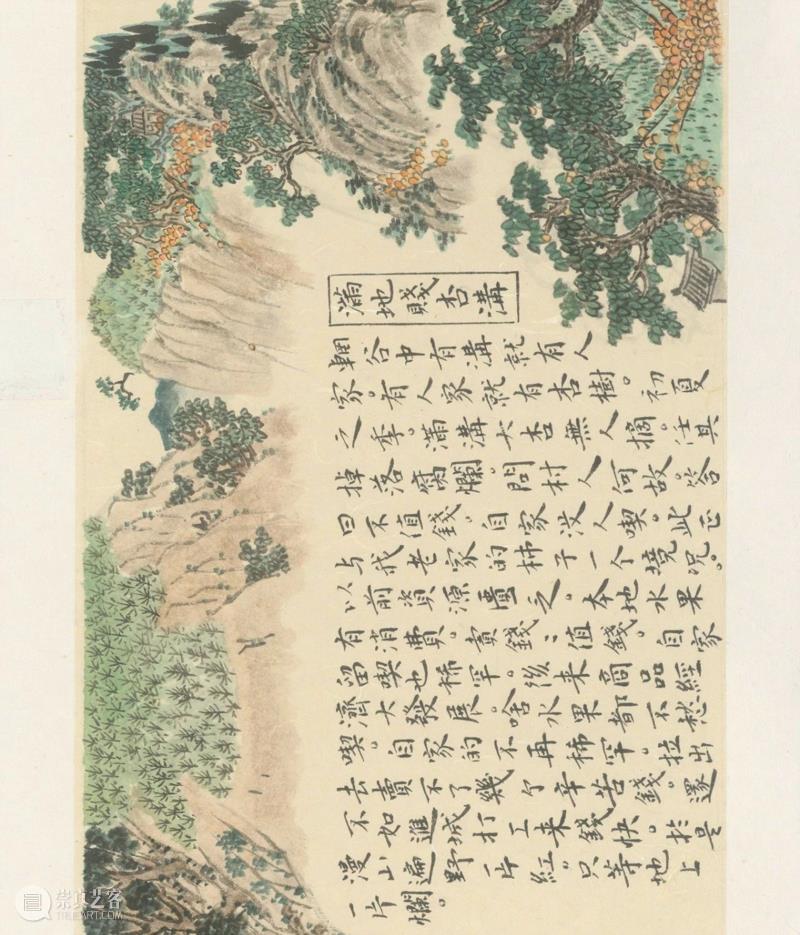 滿地賤杏溝
輞谷中有溝就有人
家。有人家就有杏樹。初夏
之季。滿溝大杏無人摘。任其
掉落腐爛。問村人何故。答
曰不值錢。自家没人喫。此正
与我老家的柿子一个境况。
以前資源匱乏。本地水果
有消費。賣錢〻值錢。自家
留喫也稀罕。後来商品經
濟大發展。啥水果都不愁
喫。自家的不再稀罕。拉出
去賣不了幾个辛苦錢。還
不如進城打工来錢快。於是
漫山遍野一片紅。只等地上
一片爛。
崇真艺客